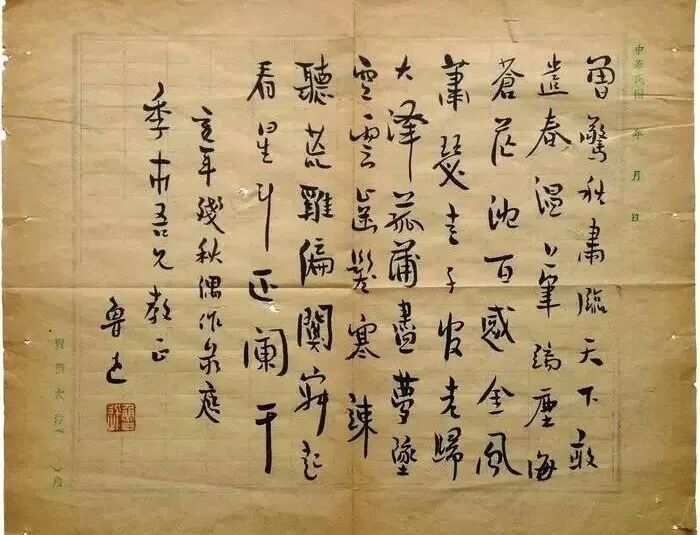 中華民國 年 月 日
曾驚秋肅臨天下敢
遣春溫上筆端塵海
蒼茫沈百感金風
蕭瑟走千官老歸
大澤菰蒲盡夢墜
空雲齒髮寒竦
聽荒雞偏闃寂起
看星斗正闌干
亥年殘秋偶作录應
季市吾兄教正
魯迅